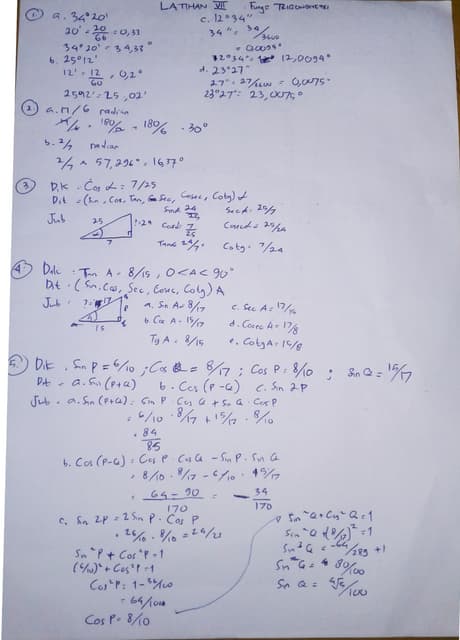 LATIHAN VII Fungsi TRIGONOMETRI
1 a. 34°20'
20' = 20/60 = 0,33
34°20' = 34,33°
b. 25°12'
12' = 12/60 = 0,2°
25°12' = 25,02'
c. 12°34"
34" = 34/3600
= 0,0094°
12°34" = 12,0094°
d. 23°27"
27" = 27/3600 = 0,0075°
23°27" = 23,0075°
2 a. π/6 radian
π/6 . 180/π = 180/6 = 30°
b. 2/7 radian
2/7 x 57,296° = 16,37°
3 Dik : Cos α = 7/25
Dit = (Sin, Cos, Tan, Sec, Cosec, Cotg) α
Jwb
25
24
α
7
Sin α 24/25
Cos α = 7/25
Tan α 24/7
Sec α = 25/7
Cosec α = 25/24
Cotg = 7/24
4 Dik : Tan A = 8/15, 0<A<90°
Dit - (Sin, Cos, Sec, Cosec, Cotg) A
Jwb :
17
8
A
15
a. Sin A = 8/17
b. Cos A = 15/17
Tg A = 8/15
c. Sec A = 17/15
d. Cosec A = 17/8
e. Cotg A = 15/8
5. Dik . Sin P = 6/10 ; Cos Q = 8/17 ; Cos P = 8/10 ; Sin Q = 15/17
Dit - a. Sin (P+Q) b. Cos (P-Q) c. Sin 2P
Jwb - a. Sin (P+Q) = Sin P . Cos Q + Sin Q . Cos P
= 6/10 . 8/17 + 15/17 . 8/10
= 84/85
b. Cos (P-Q) = Cos P Cos Q - Sin P . Sin Q
= 8/10 . 8/17 - 6/10 . 15/17
= 64 - 90 / 170 = - 34/170
c. Sin 2P = 2 Sin P . Cos P
= 2 6/10 . 8/10 = 24/25
Sin² P + Cos² P = 1
(6/10)² + Cos² P = 1
Cos² P = 1 - 36/100
= 64/100
Cos P = 8/10
Sin² Q + Cos² Q = 1
Sin² Q + (8/17)² = 1
Sin² Q = -64/289 + 1